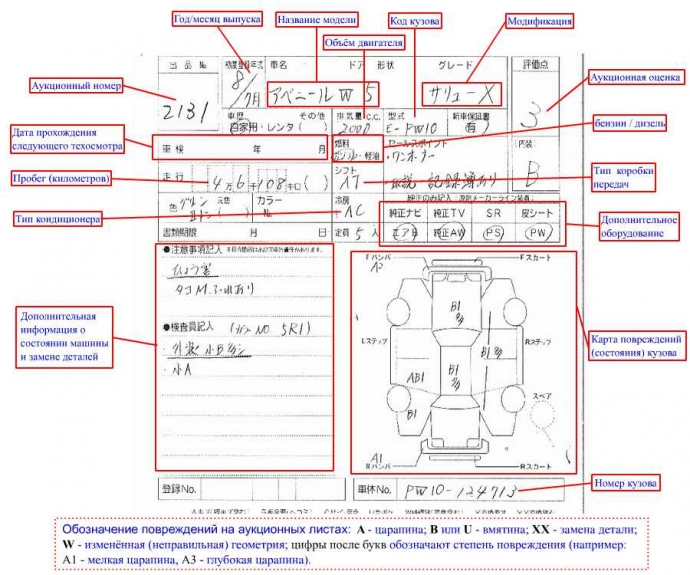 Год/месяц выпуска
Название модели
Код кузова
Модификация
Объём двигателя
出品 №
初度登録年式
車名
ドア 形状
グレード
評価点
Аукционный номер
Аукционная оценка
8/7月
アベニールW 5
サリュー X
2131
3
車歴
その他
自家用・レンタ( )
排気量 C.C.
2000
型式
E-PW10
新車保証書
有
Дата прохождения
следующего техосмотра
車検 年 月
燃料
ガソリン・軽油
セールスポイント
・ワンオーナー
бензин / дизель
内装
B
Пробег (километров)
走行
4万6千108キロ( )
シフト
AT
取説 記録簿あり
Тип коробки
передач
色
元色
カラー
№
冷房
AC
Тип кондиционера
純正ナビ 純正TV SR 皮シート
エアB 純正AW PS PW
Дополнительное
оборудование
書類期限 月 日
定員 5 人
●注意事項記入
ひょう害
●検査員記入
外装小B多シ
・小A
Дополнительная
информация о
состоянии машины
и замене деталей
Fバンパ
Fスカート
A2
B1
多
Lステップ
Rステップ
B1
多
AB1
B1
多
スペア
A1
Rバンパ
Rスカート
Карта повреждений
(состояния) кузова
登録No.
車体No.
PW10-124713
Номер кузова
Обозначение повреждений на аукционных листах: A - царапина; B или U - вмятина; XX - замена детали;
W - изменённая (неправильная) геометрия; цифры после букв обозначают степень повреждения (например:
A1 - мелкая царапина, A3 - глубокая царапина).